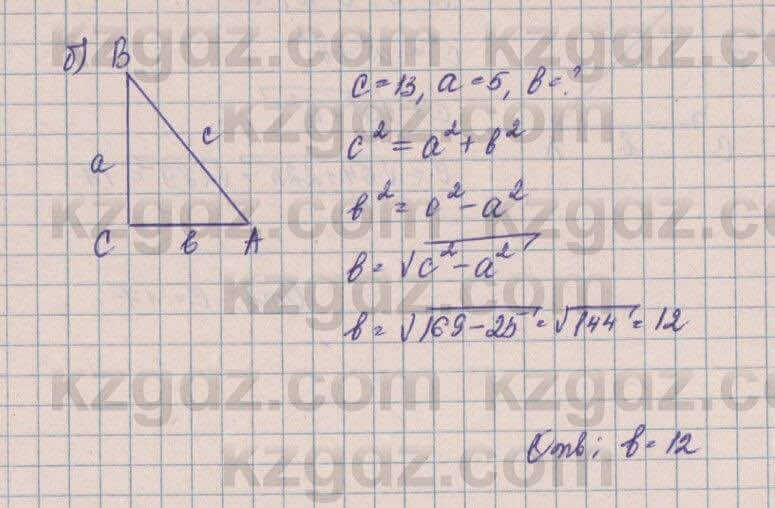 б) B
c = 13, a = 5, в = ?
c² = a² + в²
a
c
в² = c² - a²
C
в
A
в = √c² - a²
в = √169 - 25 = √144 = 12
Отв: в = 12
kzgdz.com kzgdz.com
kzgdz.com
kzgdz.com kzgdz.com
kzgdz.com
kzgdz.com kzgdz.com
kzgdz.com